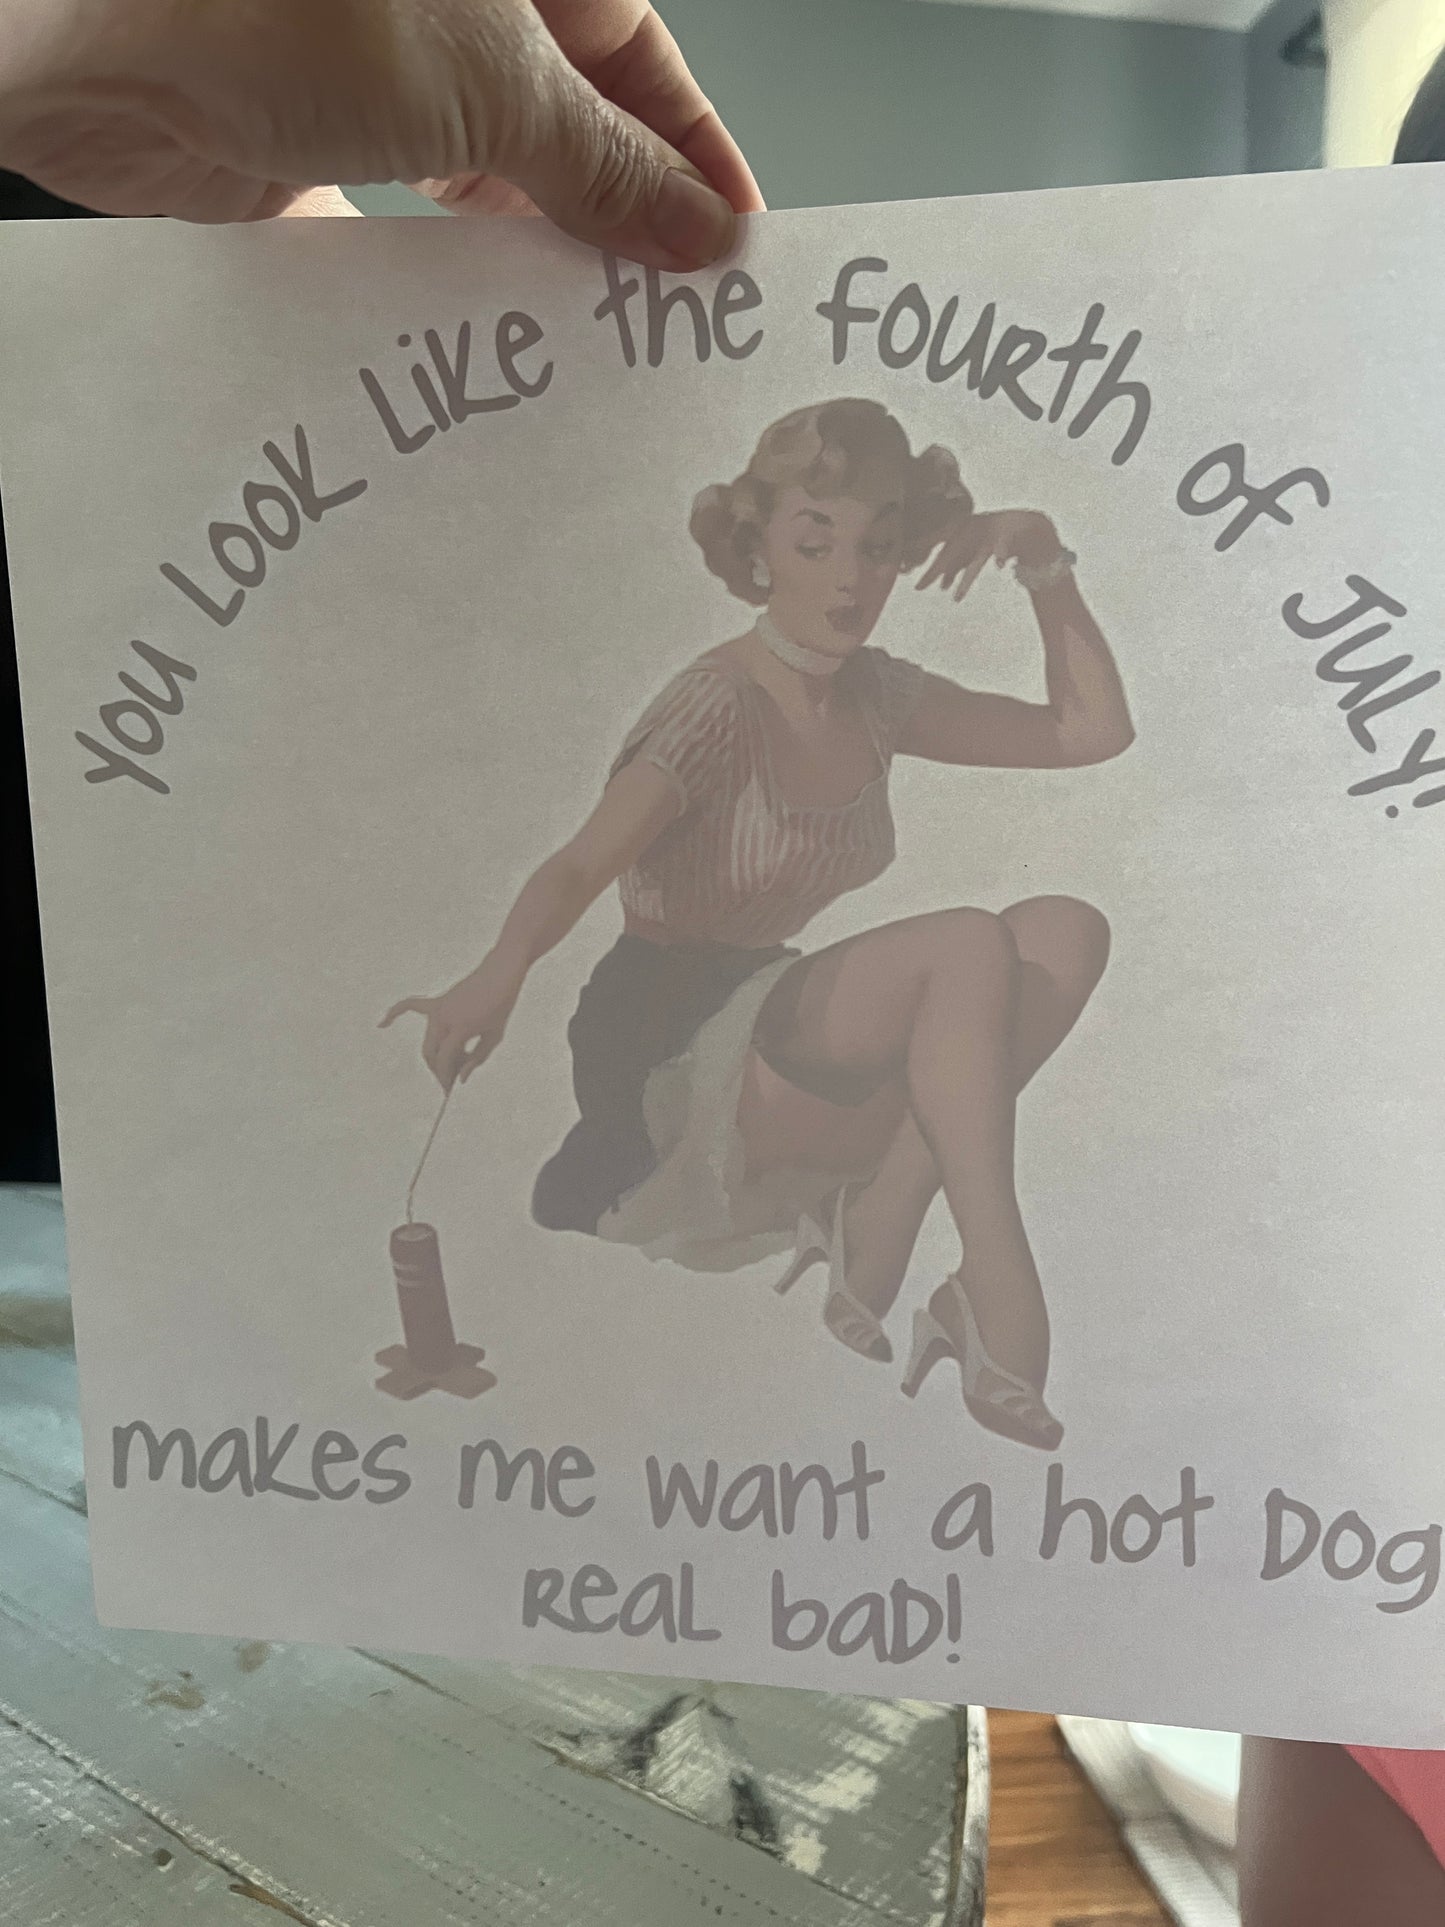 You Look Like the fourth of July!
makes me want a hot Dog
Real bad!